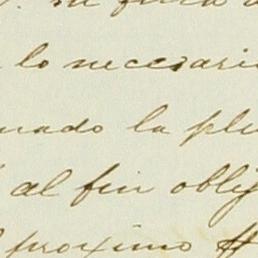 lo necesari
nado la plu
al fin oblig
proximo